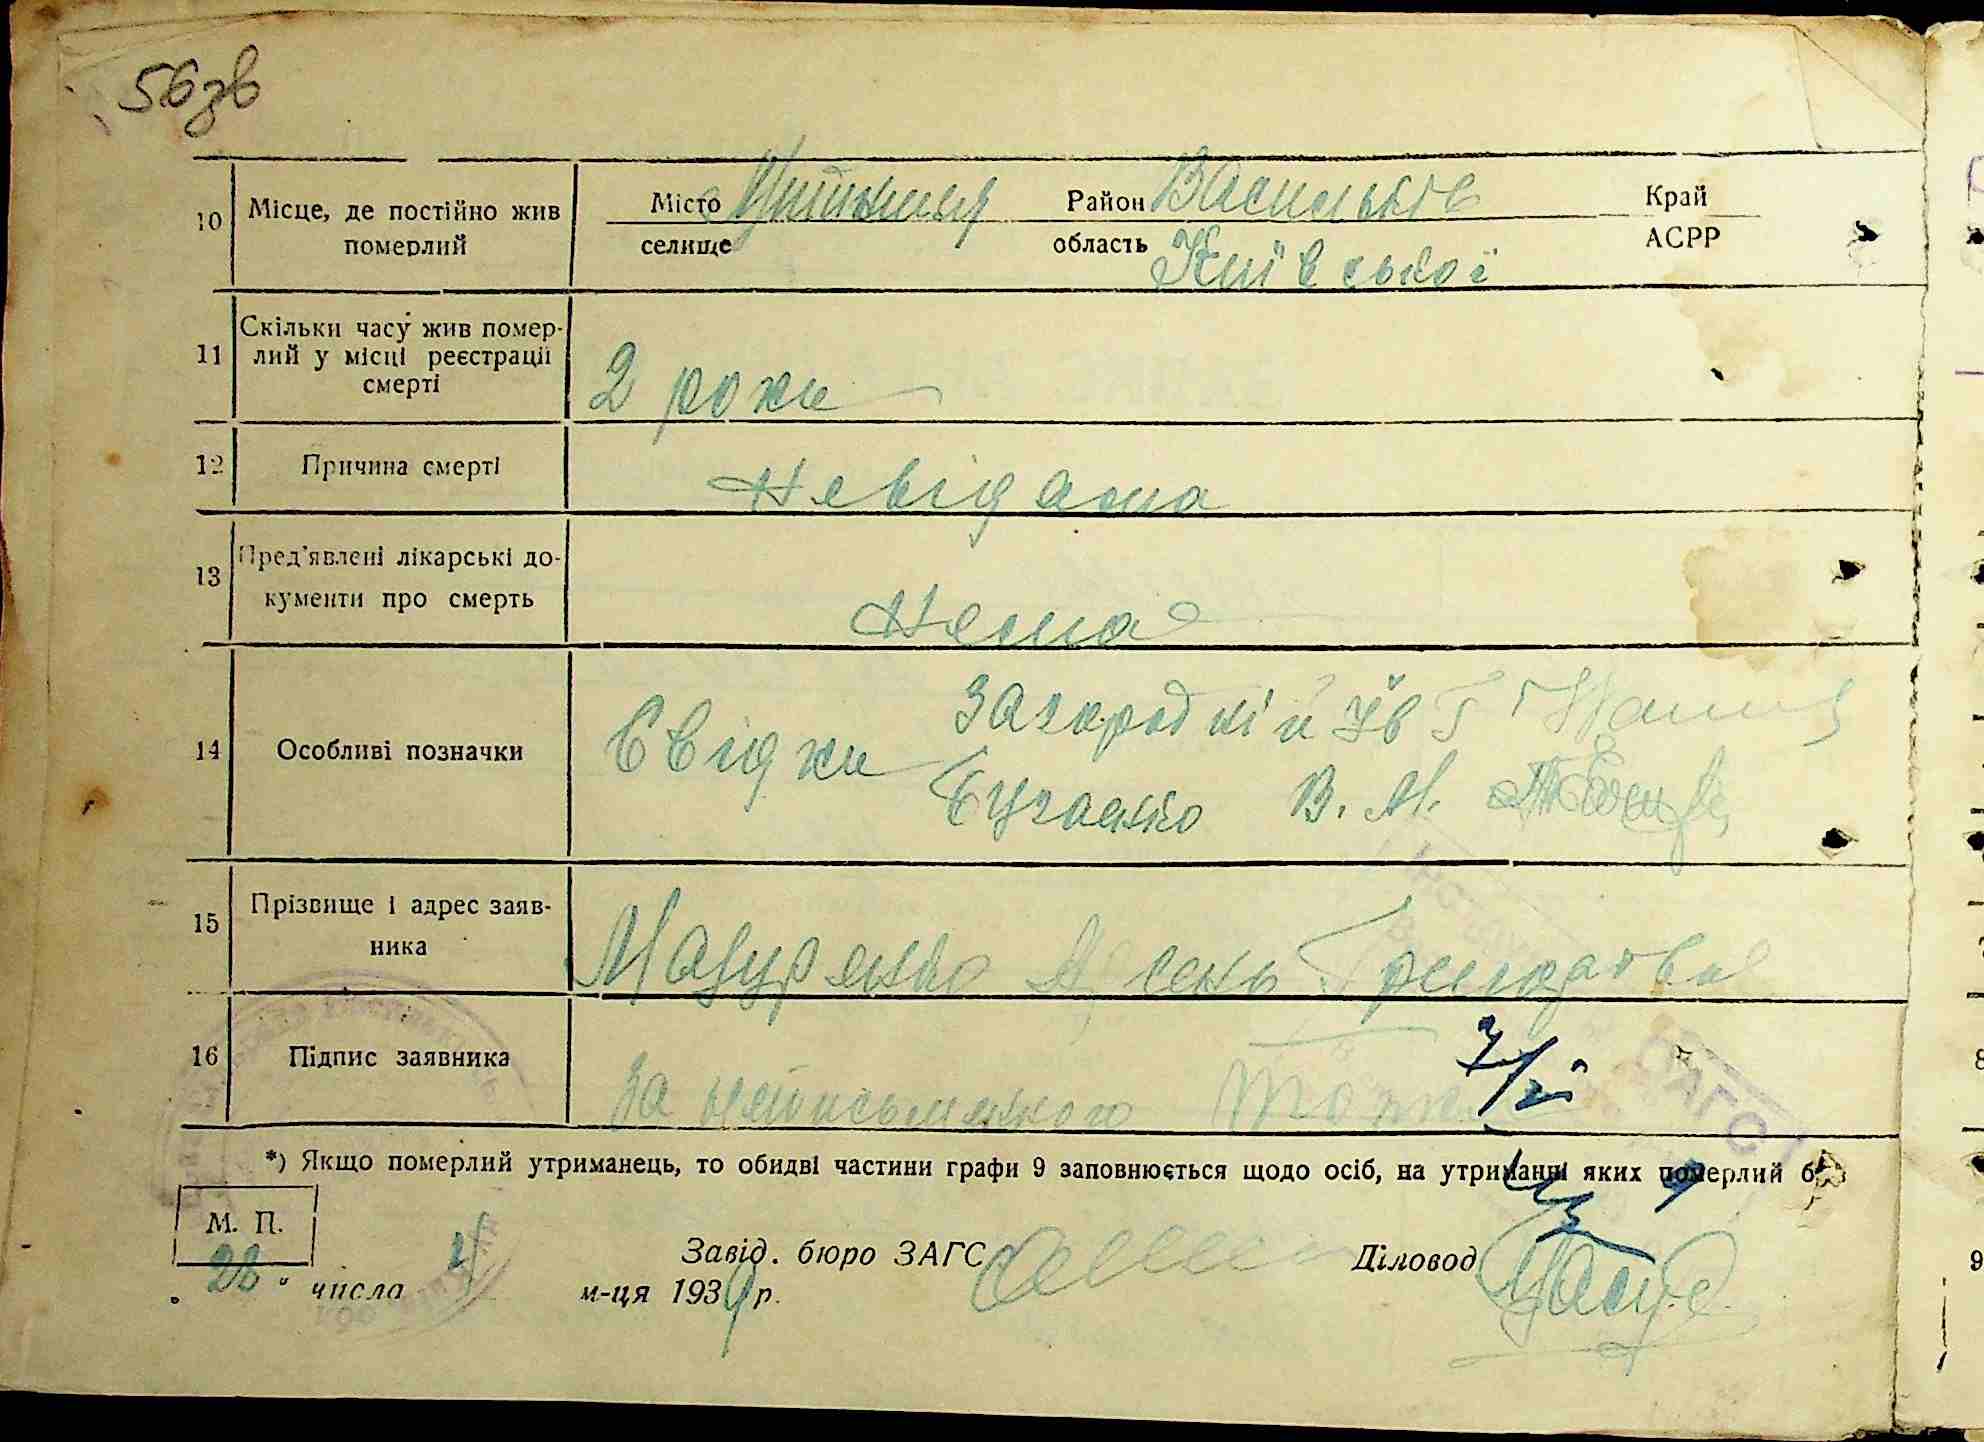 56зв
10 Місце, де постійно жив померлий Місто Район Васильків Край
селище область Київської АСРР
11 Скільки часу жив помер-
лий у місці реєстрації
смерті
2 роки
12 Причина смерті Невідома
13 Пред'явлені лікарські до-
кументи про смерть
Нема
14 Особливі позначки Свідки Загородній Ів Г
В. М.
15 Прізвище і адрес заяв-
ника
Мазуренко Арсень Григорович
16 Підпис заявника За неписьменного
*) Якщо померлий утриманець, то обидві частини графи 9 заповнюється щодо осіб, на утриманні яких померлий
М. П.
Завід. бюро ЗАГС Діловод
28 " числа м-ця 1939 р.
ЗАГС